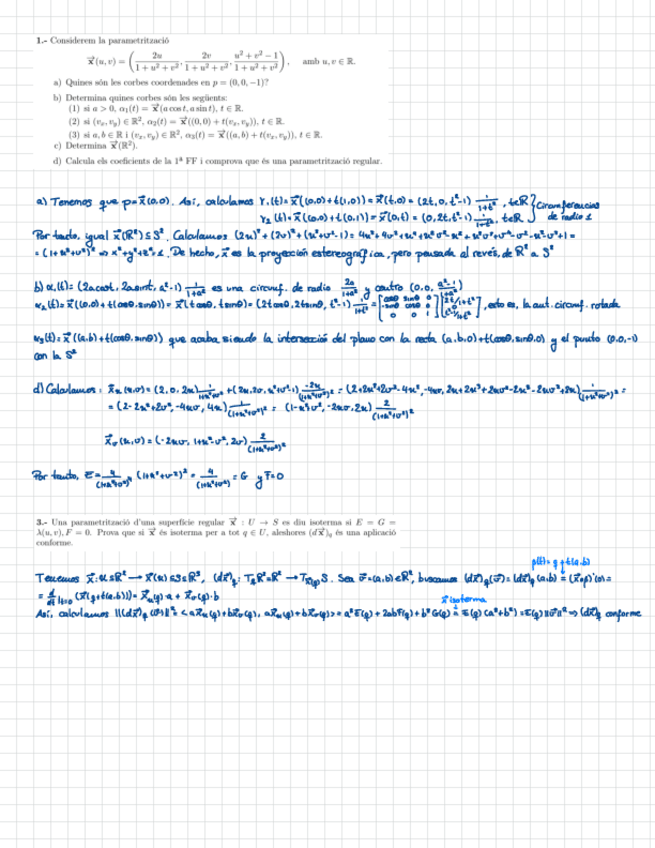 1.- Considerem la parametrització
x⃗(u, v) = ( 2u / (1 + u² + v²), 2v / (1 + u² + v²), (u² + v² − 1) / (1 + u² + v²) ), amb u, v ∈ ℝ.
a) Quines són les corbes coordenades en p = (0, 0, −1)?
b) Determina quines corbes són les següents:
(1) si a > 0, α₁(t) = x⃗(a cos t, a sin t), t ∈ ℝ.
(2) si (vₓ, v_y) ∈ ℝ², α₂(t) = x⃗((0, 0) + t(vₓ, v_y)), t ∈ ℝ.
(3) si a, b ∈ ℝ i (vₓ, v_y) ∈ ℝ², α₃(t) = x⃗((a, b) + t(vₓ, v_y)), t ∈ ℝ.
c) Determina x⃗(ℝ²).
d) Calcula els coeficients de la 1ª FF i comprova que és una parametrització regular.
a) Tenemos que p=x⃗(0,0). Así, calculamos γ₁(t)=x⃗((0,0)+t(1,0))=x⃗(t,0)=(2t,0,t²-1) 1/(1+t²), t∈ℝ } Circunferencias
γ₂(t)=x⃗((0,0)+t(0,1))=x⃗(0,t)=(0,2t,t²-1) 1/(1+t²), t∈ℝ } de radio 1
Por tanto, igual x⃗(ℝ²)⊆S². Calculamos (2u)²+(2v)²+(u²+v²-1)=4u²+4v²+
=(1+u²+v²)² ⇒ x²+y²+z²=1. De hecho, x⃗ es la proyección estereográfica, pero pensada al revés, de ℝ² a S²
b) α₁(t)=(2acost, 2asint, a²-1) 1/(1+a²) es una circunf. de radio 2a/(1+a²) y centro (0,0, (a²-1)/(1+a²))
α₂(t)=x⃗((0,0)+t(cosθ,sinθ))=x⃗(tcosθ, tsinθ)=(2tcosθ,2tsinθ,t²-1) 1/(1+t²) = , esto es, la ant. circunf. rotada
α₃(t)=x⃗((a,b)+t(cosθ,sinθ)) que acaba siendo la intersección del plano con la recta (a,b,0)+t(cosθ,sinθ,0) y el punto (0,0,-1)
con la S²
d) Calculamos: x⃗ᵤ(u,v)=(2,0,2u) 1/(1+u²+v²) +(2u,2v,u²+v²-1) -2u/(1+u²+v²)² =
=(2-2u²+2v²,-4uv,4u) 1/(1+u²+v²)² = (1-u²+v²,-2uv,2u) 2/(1+u²+v²)²
x⃗ᵥ(u,v)=(-2uv,1+u²-v²,2v) 2/(1+u²+v²)²
Por tanto, E= 4/(1+u²+v²)⁴ (1+u²+v²)² = 4/(1+u²+v²)² = G y F=0
3.- Una parametrització d'una superfície regular x⃗ : U → S es diu isoterma si E = G =
λ(u, v), F = 0. Prova que si x⃗ és isoterma per a tot q ∈ U, aleshores (dx⃗)_q és una aplicació
conforme.
p(t)= q+t(a,b)
Tenemos x⃗:U⊆ℝ² → x⃗(U)⊆S⊆ℝ³, (dx⃗)_q: T_qℝ²≡ℝ² → T_x⃗(q)S. Sea v⃗=(a,b)∈ℝ², buscamos (dx⃗)_q(v⃗)=(dx⃗)_q(a,b) = (x⃗∘p)'(0)=
= d/dt |t=0 (x⃗(q+t(a,b)))= x⃗ᵤ(q)·a + x⃗ᵥ(q)·b
x⃗ isoterma
Así, calculamos ||(dx⃗)_q(v⃗)||²=<ax⃗ᵤ(q)+bx⃗ᵥ(q), ax⃗ᵤ(q)+bx⃗ᵥ(q)>= a²E(q)+2abF(q)+b²G(q) = E(q)(a²+b²)=E(q)||v⃗||² ⇒ (dx⃗)_q conforme